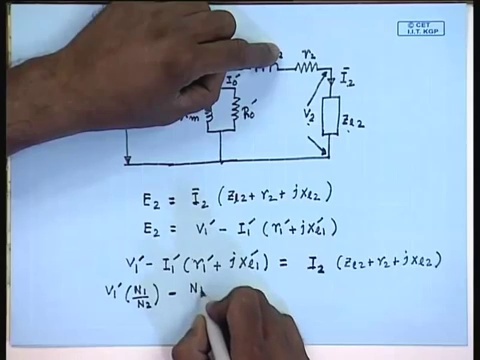 © CET
I.I.T. KGP
r₂
I₀′
Ī₂
R₀′
V₂
Z_{l2}
E₂ = Ī₂ (Z_{l2} + r₂ + j x_{l2})
E₂ = V₁′ − I₁′ (r₁′ + j x_{l1}′)
V₁′ − I₁′ (r₁′ + j x_{l1}′) = I₂ (Z_{l2} + r₂ + j x_{l2})
V₁′ (N₁/N₂) − N₁